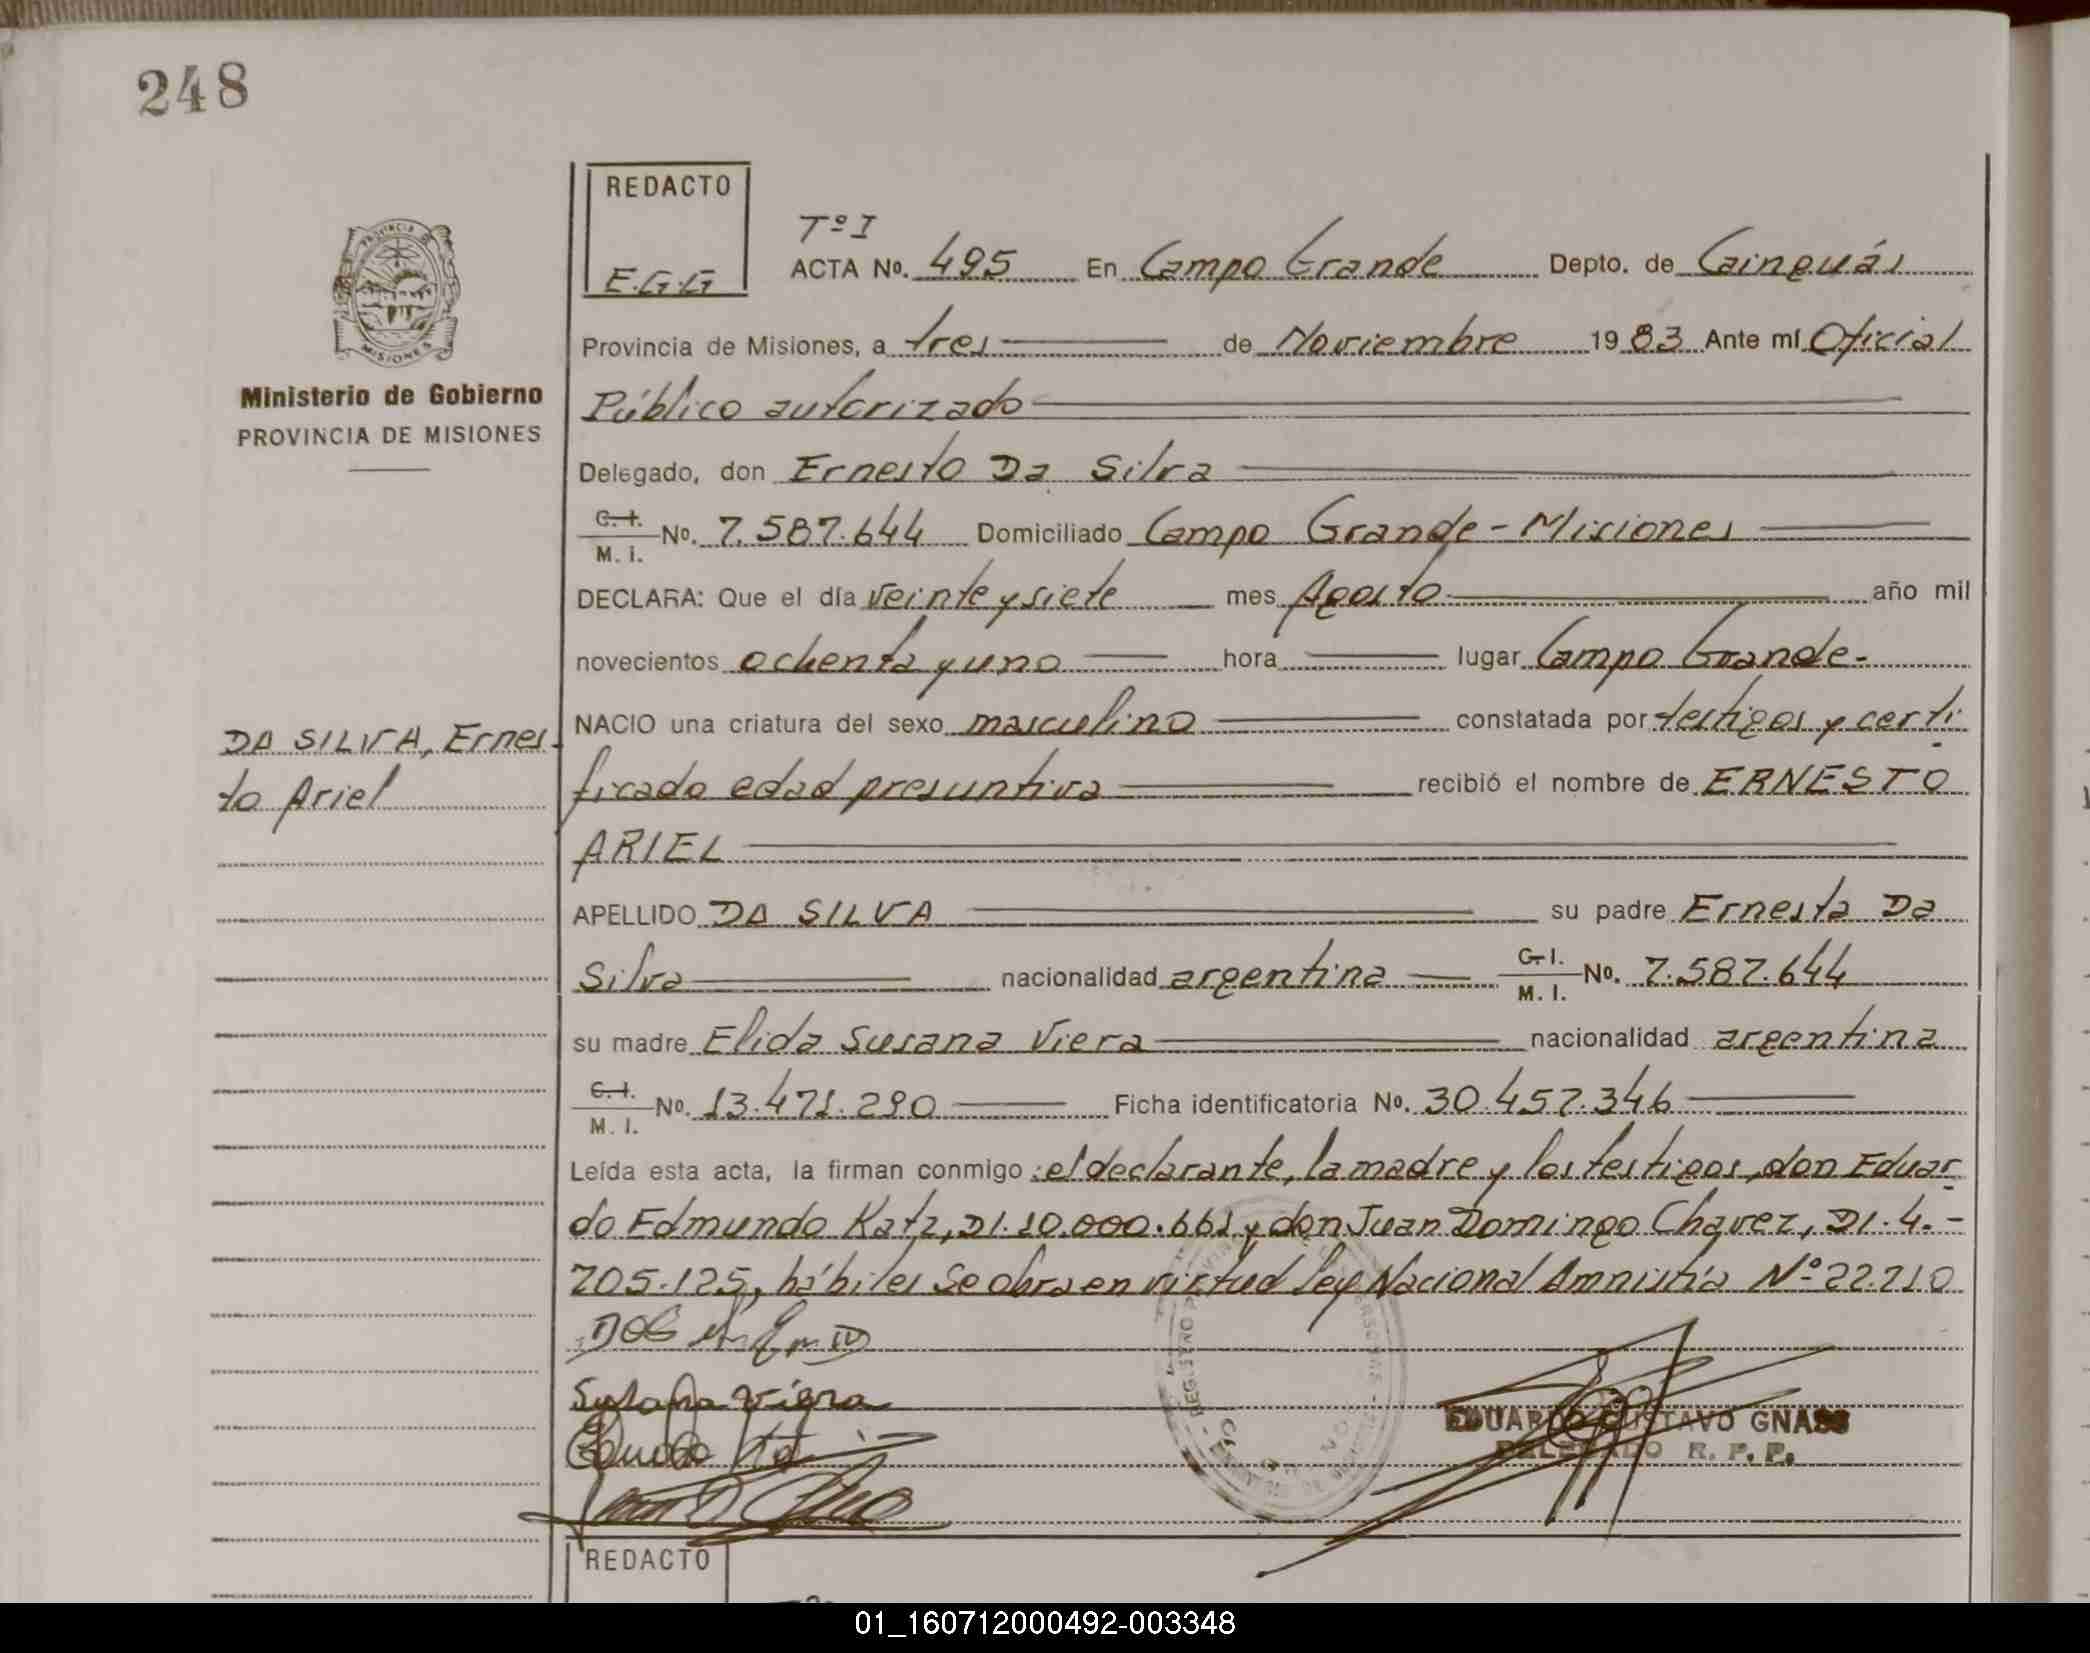 248
REDACTO
E.G.G
PROVINCIA D
MISIONES
Ministerio de Gobierno
PROVINCIA DE MISIONES
Tº I
ACTA Nº. 495 En Campo Grande Depto. de Cainguás
Provincia de Misiones, a tres de Noviembre 1983 Ante mí Oficial
Público autorizado
Delegado, don Ernesto Da Silva
C.I. M.I. Nº. 7.587.644 Domiciliado Campo Grande - Misiones
DECLARA: Que el día veinte y siete mes Agosto año mil
novecientos ochenta y uno hora lugar Campo Grande-
NACIO una criatura del sexo masculino constatada por testigos y certi
DA SILVA, Ernes-
to Ariel
ficado edad presuntiva recibió el nombre de ERNESTO
ARIEL
APELLIDO DA SILVA su padre Ernesto Da
Silva nacionalidad argentina C.I. M.I. Nº. 7.587.644
su madre Elida Susana Viera nacionalidad argentina
C.I. M.I. Nº. 13.471.290 Ficha identificatoria Nº. 30.457.346
Leída esta acta, la firman conmigo: el declarante, la madre y los testigos, don Eduar
do Edmundo Katz, DI. 10.000.661 y don Juan Domingo Chavez, DI. 4.-
705.125, hábiles Se obra en virtud ley Nacional Amnistía Nº 22.710
Susana Viera
EDUARDO GUSTAVO GNASS
DELEGADO R. P. P.
REDACTO
01_160712000492-003348